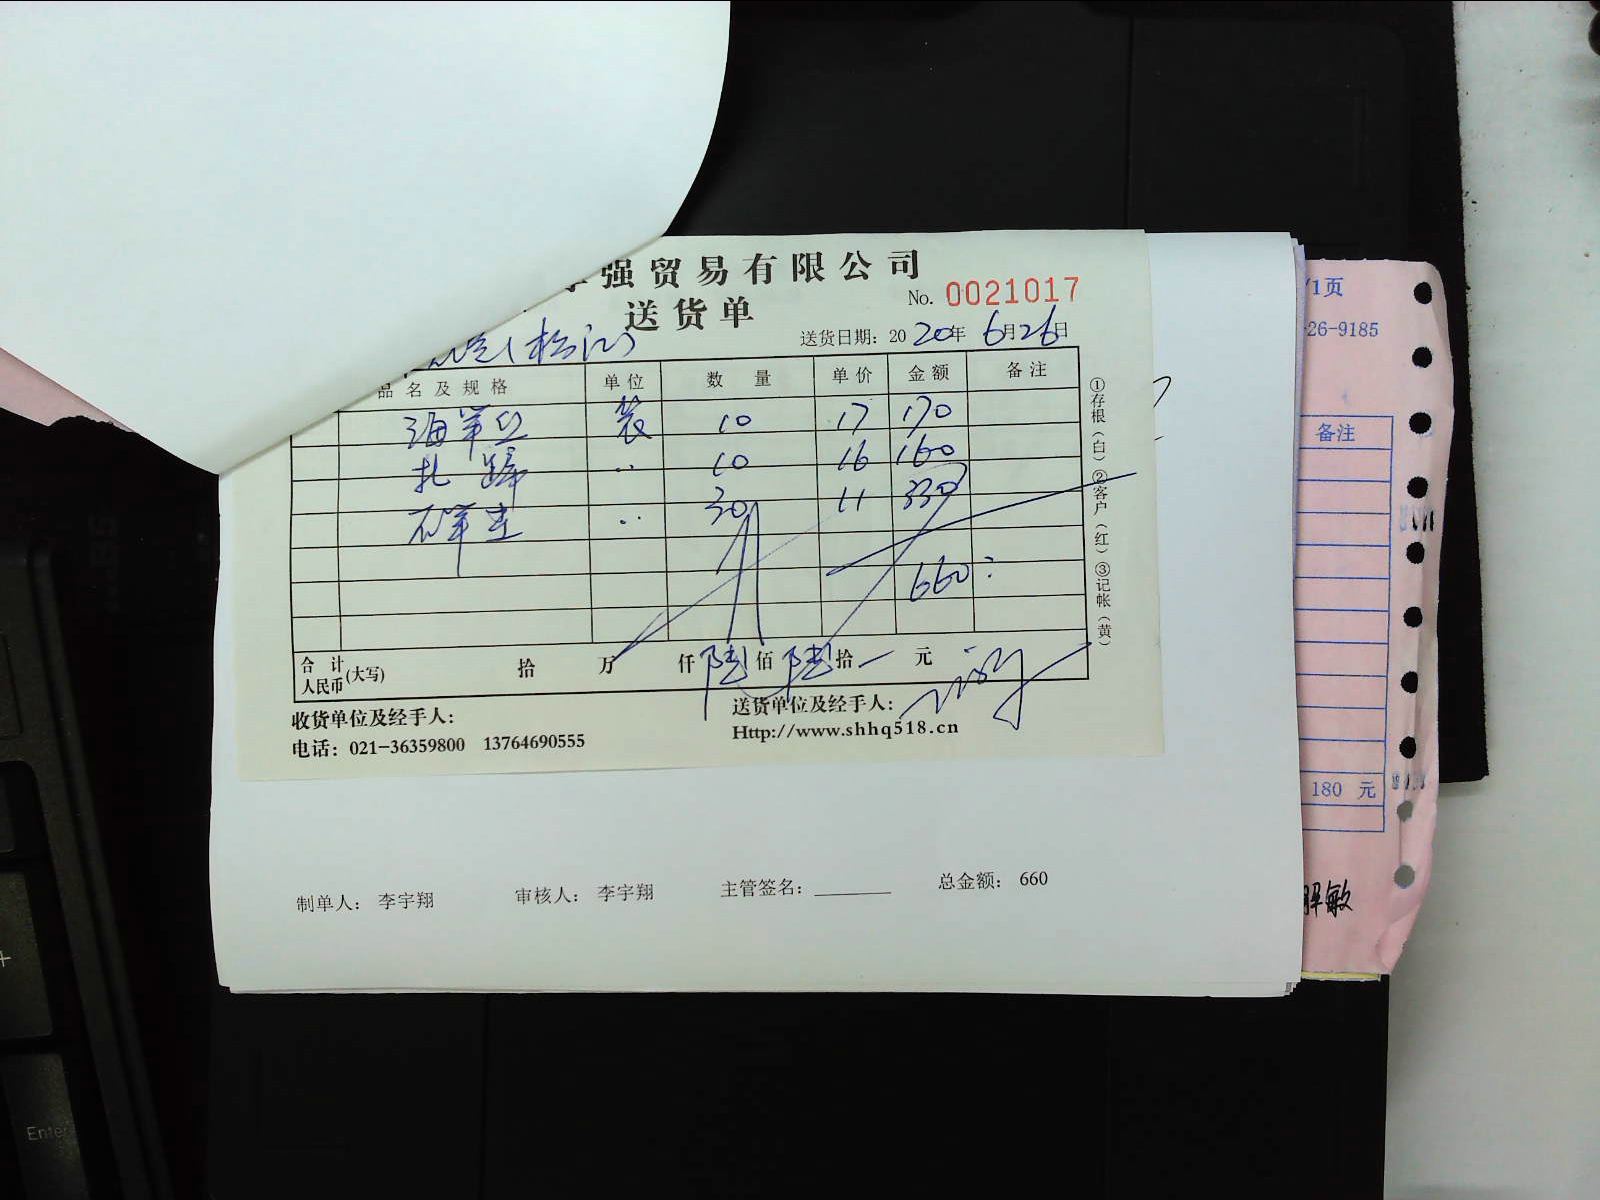 强贸易有限公司
No. 0021017
送货单
(松江)
送货日期: 2020年6月26日
品名及规格 单位 数量 单价 金额 备注
海 袋 10 17 170
扎蹄 ‥ 10 16 160
‥ 30 11 330
660
合计人民币(大写) 拾 万 仟 陆佰 陆拾 元
收货单位及经手人:
送货单位及经手人:
电话: 021-36359800 13764690555
Http://www.shhq518.cn
①存根(白) ②客户(红) ③记帐(黄)
制单人: 李宇翔 审核人: 李宇翔 主管签名: 总金额: 660
/1页
-26-9185
备注
180 元
敏
Enter